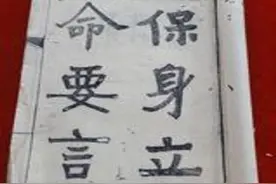 保身立
命要言